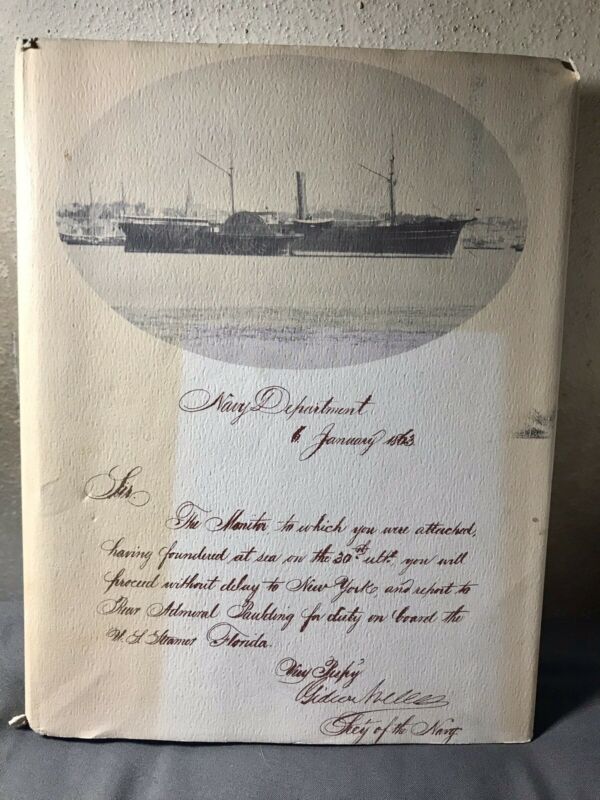 Navy Department
6 January 1863
Sir
The Monitor, to which you were attached,
having foundered at sea on the 30th ulto. you will
proceed without delay to New York, and report to
Rear Admiral Paulding for duty on board the
U. S. Steamer Florida.
Very Respy
Gideon Welles
Secy of the Navy